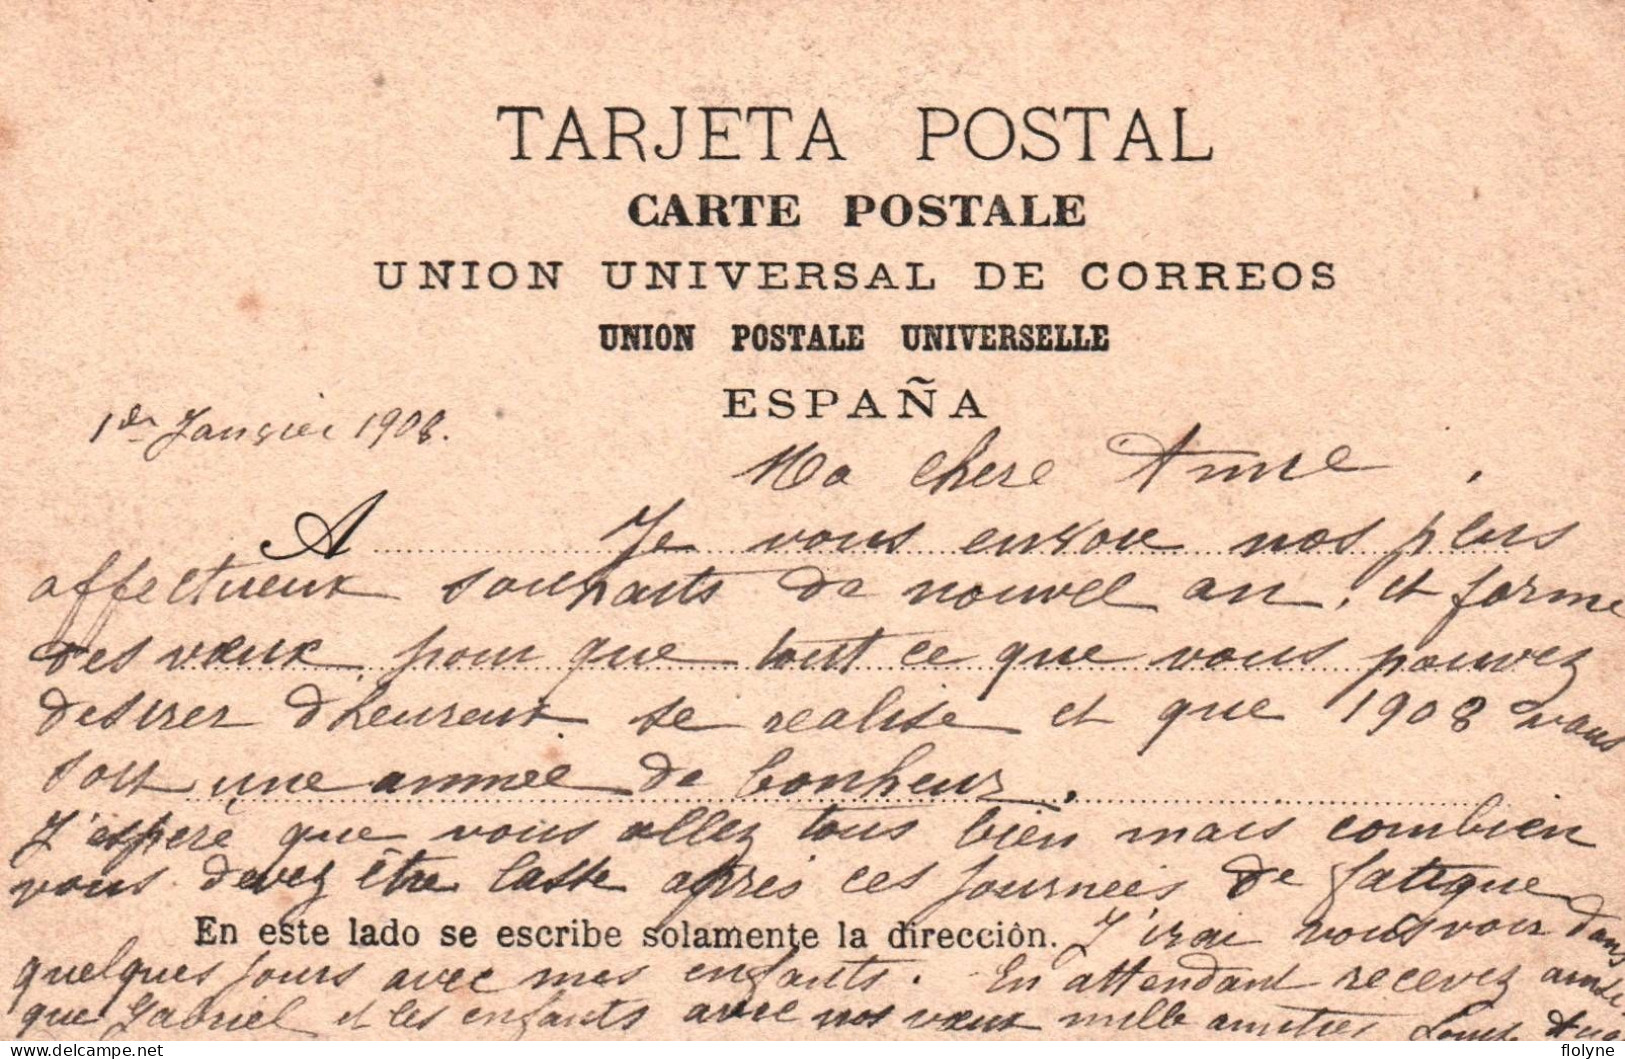 TARJETA POSTAL
CARTE POSTALE
UNION UNIVERSAL DE CORREOS
UNION POSTALE UNIVERSELLE
ESPAÑA
1er Janvier 1908.
Ma chere Anne.
A Je vous envoie nos plus
affectueux souhaits de nouvel an, et forme
des vœux pour que tout ce que vous pouvez
desirer d'heureux se realise et que 1908 vous
soit une année de bonheur.
J'espere que vous allez tous bien mais combien
vous devez être lasse après ces journees de fatigue
En este lado se escribe solamente la dirección. J'irai vous voir dans
quelques jours avec mes enfants. En attendant recevez ainsi
que Gabriel et les enfants avec nos vœux mille amities
delcampe.net
flolyne